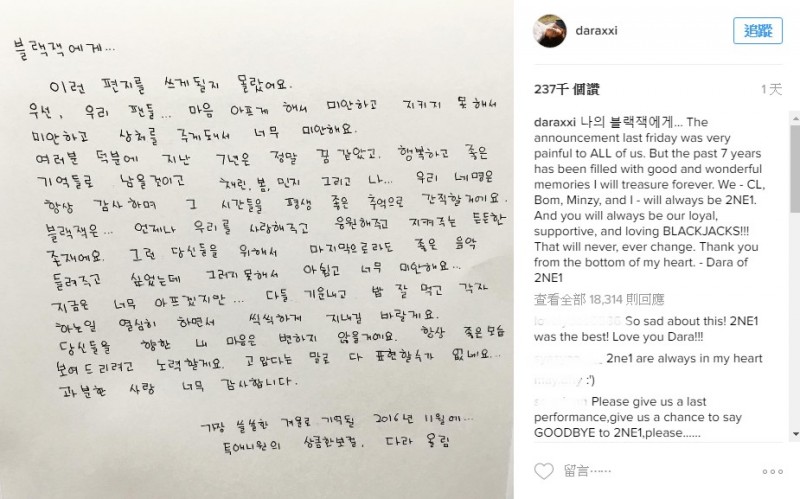 블랙잭에게...
이런 편지를 쓰게될지 몰랐어요.
우선, 우리 팬들... 마음 아프게 해서 미안하고 지키지 못해서
미안하고 상처를 주게돼서 너무 미안해요.
여러분 덕분에 지난 7년은 정말 꿈 같았고, 행복하고 좋은
기억들로 남을것이고 채린, 봄, 민지 그리고 나... 우리 네명은
항상 감사하며 그 시간들을 평생 좋은 추억으로 간직할거에요.
블랙잭은... 언제나 우리를 사랑해주고 응원해주고 지켜주는 든든한
존재에요. 그런 당신들을 위해서 마지막으로라도 좋은 음악
들려주고 싶었는데 그러지못해서 아쉽고 너무 미안해요...
지금은 너무 아프겠지만... 다들 기운내고 밥 잘 먹고 각자
하는일 열심히 하면서 씩씩하게 지내길 바랄게요.
당신들을 향한 내 마음은 변하지 않을거에요. 항상 좋은모습
보여드리려고 노력할게요. 고맙다는 말로 다 표현할수가 없네요...
과분한 사랑 너무 감사합니다.
가장 쓸쓸한 겨울로 기억될 2016년 11월에...
투애니원의 상큼한보컬, 다라 올림
daraxxi
追蹤
237千 個讚 1天
daraxxi 나의 블랙잭에게... The
announcement last friday was very
painful to ALL of us. But the past 7 years
has been filled with good and wonderful
memories I will treasure forever. We - CL,
Bom, Minzy, and I - will always be 2NE1.
And you will always be our loyal,
supportive, and loving BLACKJACKS!!!
That will never, ever change. Thank you
from the bottom of my heart. - Dara of
2NE1
查看全部 18,314 則回應
So sad about this! 2NE1
was the best! Love you Dara!!!
2ne1 are always in my heart
:')
Please give us a last
performance,give us a chance to say
GOODBYE to 2NE1,please......
留言……